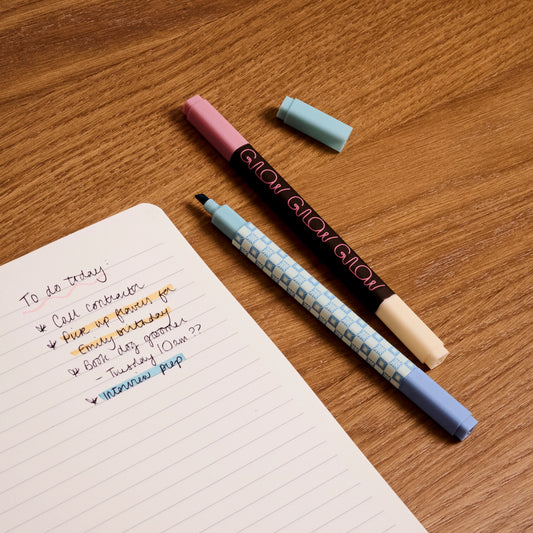 To do today:
* Call contractor
* Pick up flowers for
Emily birthday
* Book dog groomer
- Tuesday 10am??
* Interview prep
GLOW GLOW GLOW